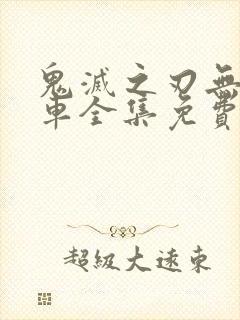 鬼滅之刃無
車全集免費
超級大遠東